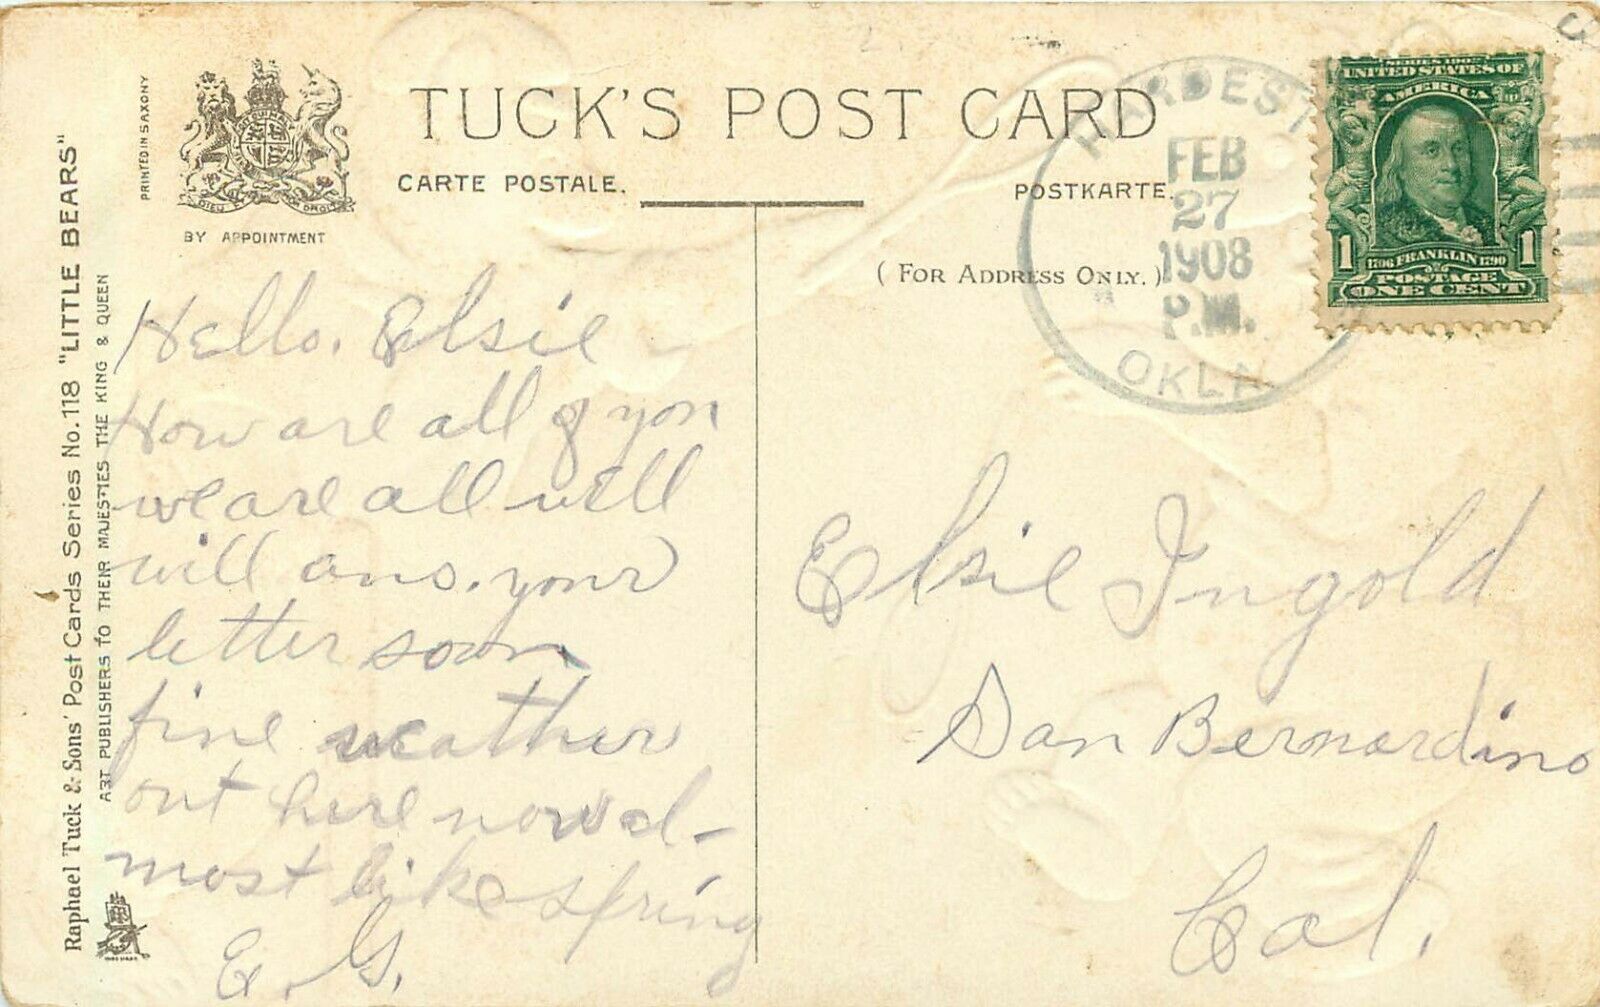 PRINTED IN SAXONY
DIEU ET MON DROIT
BY APPOINTMENT
TUCK'S POST CARD
CARTE POSTALE.
POSTKARTE.
(FOR ADDRESS ONLY.)
Raphael Tuck & Sons' Post Cards Series No. 118 "LITTLE BEARS"
ART PUBLISHERS TO THEIR MAJESTIES THE KING & QUEEN
FEB
27
1908
P.M.
OKLA
SERIES 1902
UNITED STATES OF
AMERICA
1 1
1706 FRANKLIN 1790
POSTAGE
ONE CENT
Hello. Elsie -
How are all of you
we are all well
will ans. your
letter soon
fine weather
out here now al-
most like spring
E. G.
Elsie Ingold
San Bernardino
Cal.